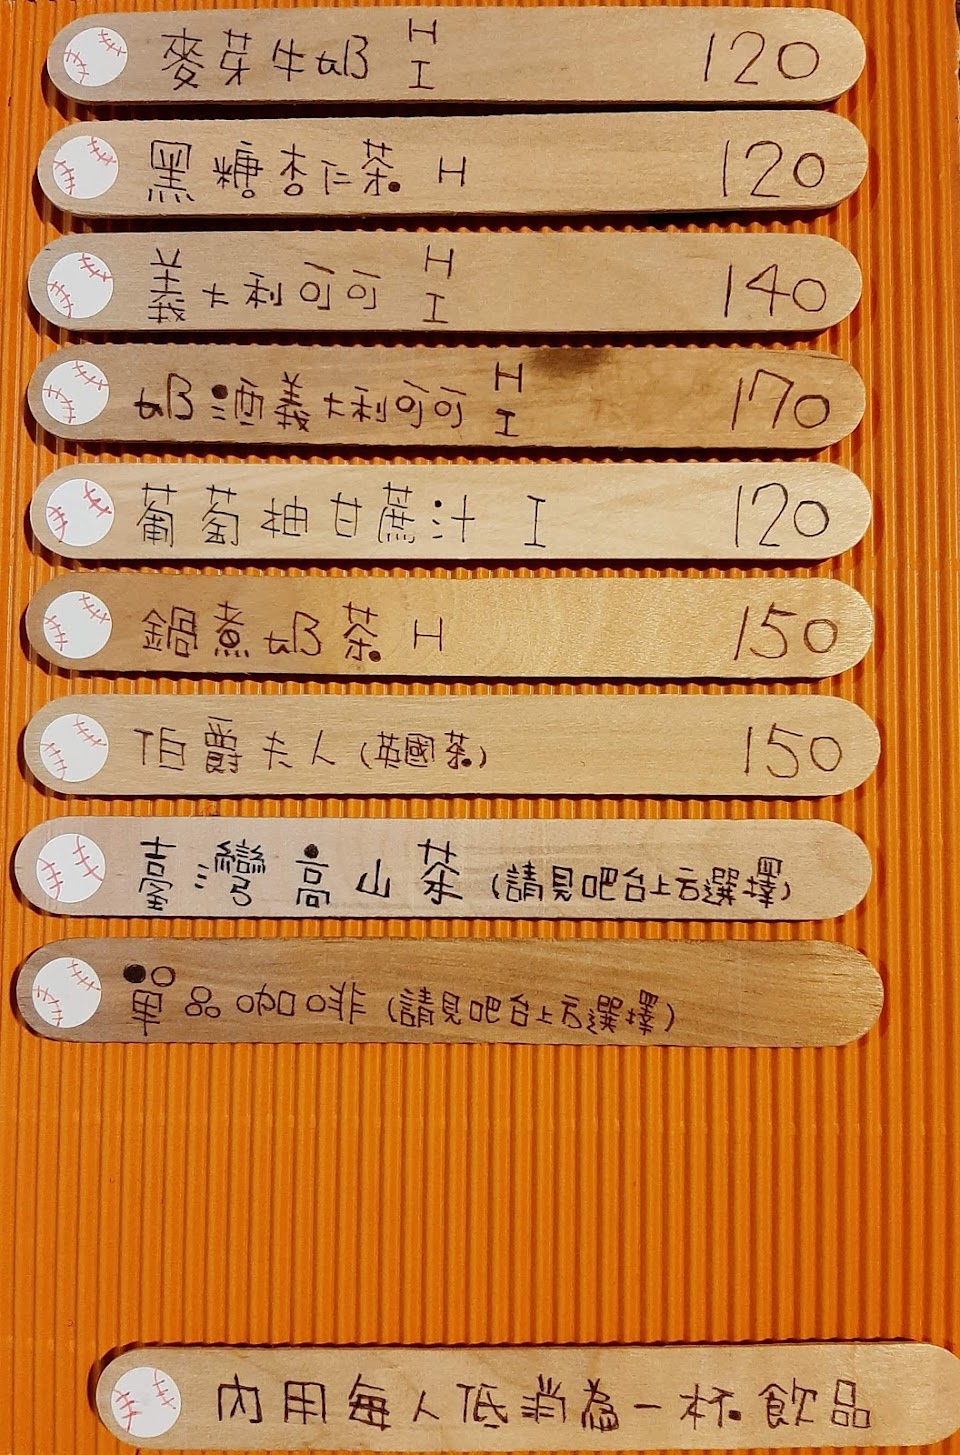 麥芽牛奶 H I 120
黑糖杏仁茶 H 120
義大利可可 H I 140
奶酒義大利可可 H I 170
葡萄柚甘蔗汁 I 120
鍋煮奶茶 H 150
伯爵夫人(英國茶) 150
臺灣高山茶(請見吧台上方選擇)
單品咖啡(請見吧台上方選擇)
內用每人低消為一杯飲品